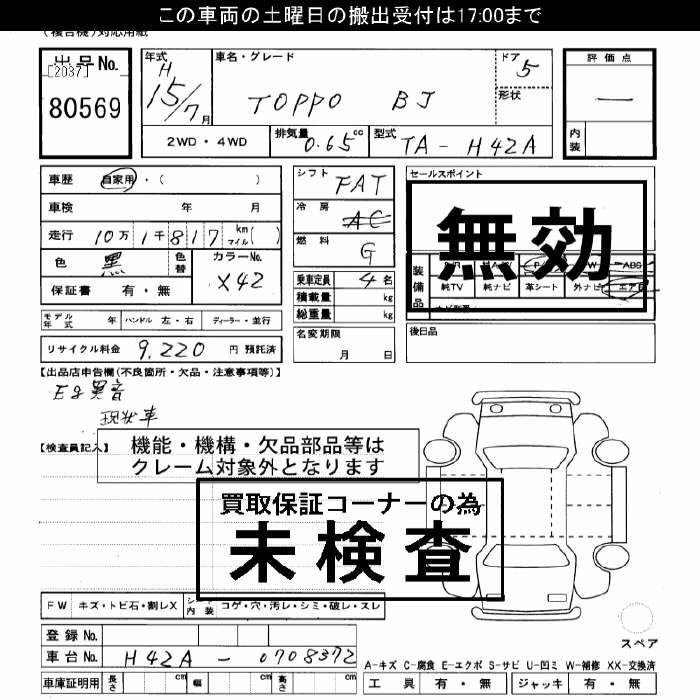 この車両の土曜日の搬出受付は17:00まで
(複合機)対応用紙
出品No.
[2037]
80569
年式 H 15/7 月
車名・グレード TOPPO BJ
ドア 5
形状
評価点 —
内装
2WD・4WD
排気量 0.65 cc
型式 TA-H42A
車歴 自家用・( )
車検 年 月
走行 10万1千817 km マイル( )
色 黒 色替 カラーNo. X42
保証書 有・無
シフト FAT
冷房 AC
燃料 G
乗車定員 4名
積載量 kg
総重量 kg
セールスポイント
無効
装備品 ABS
純TV 純ナビ 革シート 外ナビ エアB
モデル年式 年 ハンドル 左・右 ディーラー・並行
名変期限 月 日
後日品
リサイクル料金 9,220 円 預託済
【出品店申告欄(不良箇所・欠品・注意事項等)】
Eg異音
現状車
【検査員記入】
機能・機構・欠品部品等は
クレーム対象外となります
買取保証コーナーの為
未検査
FW キズ・トビ石・割レX シート内装 コゲ・穴・汚レ・シミ・破レ・スレ
登録No.
車台No. H42A-0708372
スペア
A-キズ C-腐食 E-エクボ S-サビ U-凹ミ W-補修 XX-交換済
車庫証明用 長さ cm 幅 cm 高さ cm
工具 有・無 ジャッキ 有・無